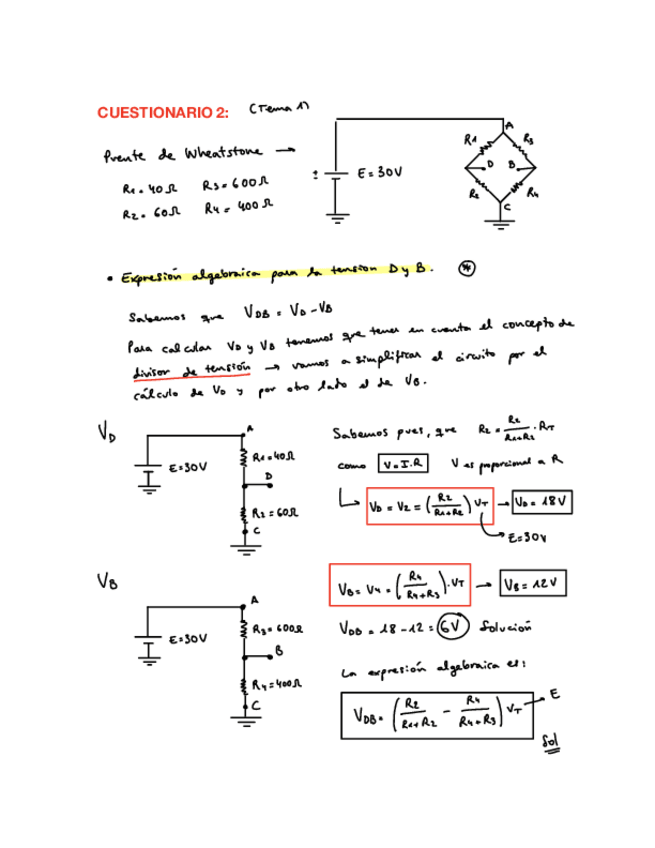 CUESTIONARIO 2: (Tema 1)
Puente de Wheatstone →
R1 = 40 Ω R3 = 600 Ω
R2 = 60 Ω R4 = 400 Ω
E = 30V
A
R1
R3
D
B
R2
R4
C
• Expresión algebraica para la tension D y B. *
Sabemos que VDB = VD - VB
Para calcular VD y VB tenemos que tener en cuenta el concepto de
divisor de tensión → vamos a simplificar el circuito por el
cálculo de VD y por otro lado el de VB.
VD
A
E = 30V
R1 = 40Ω
D
R2 = 60Ω
C
Sabemos pues, que R2 = R2/(R1+R2) · RT
como V = I.R V es proporcional a R
VD = V2 = (R2/(R1+R2)) VT → VD = 18V
E = 30V
VB
A
E = 30V
R3 = 600Ω
B
R4 = 400Ω
C
VB = V4 = (R4/(R4+R3)) · VT → VB = 12V
VDB = 18 - 12 = 6V Solución
La expresión algebraica es:
VDB = (R2/(R1+R2) - R4/(R4+R3)) VT → E
Sol